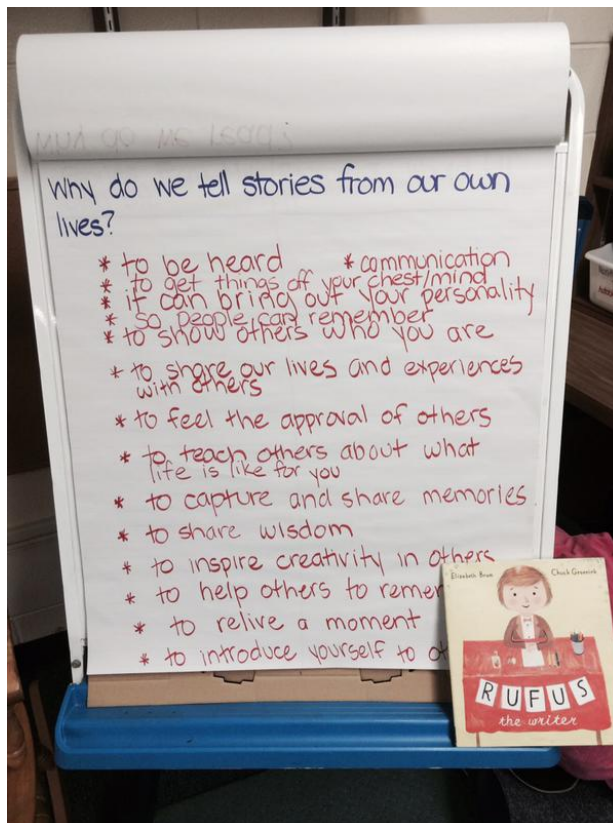 Why do we tell stories from our own
lives?
* to be heard * communication
* to get things off your chest/mind
* it can bring out your personality
* so people can remember
* to show others who you are
* to share our lives and experiences
with others
* to feel the approval of others
* to teach others about what
life is like for you
* to capture and share memories
* to share wisdom
* to inspire creativity in others
* to help others to
* to relive a moment
* to introduce yourself to
Elizabeth Bram Chuck Groenink
RUFUS
the writer